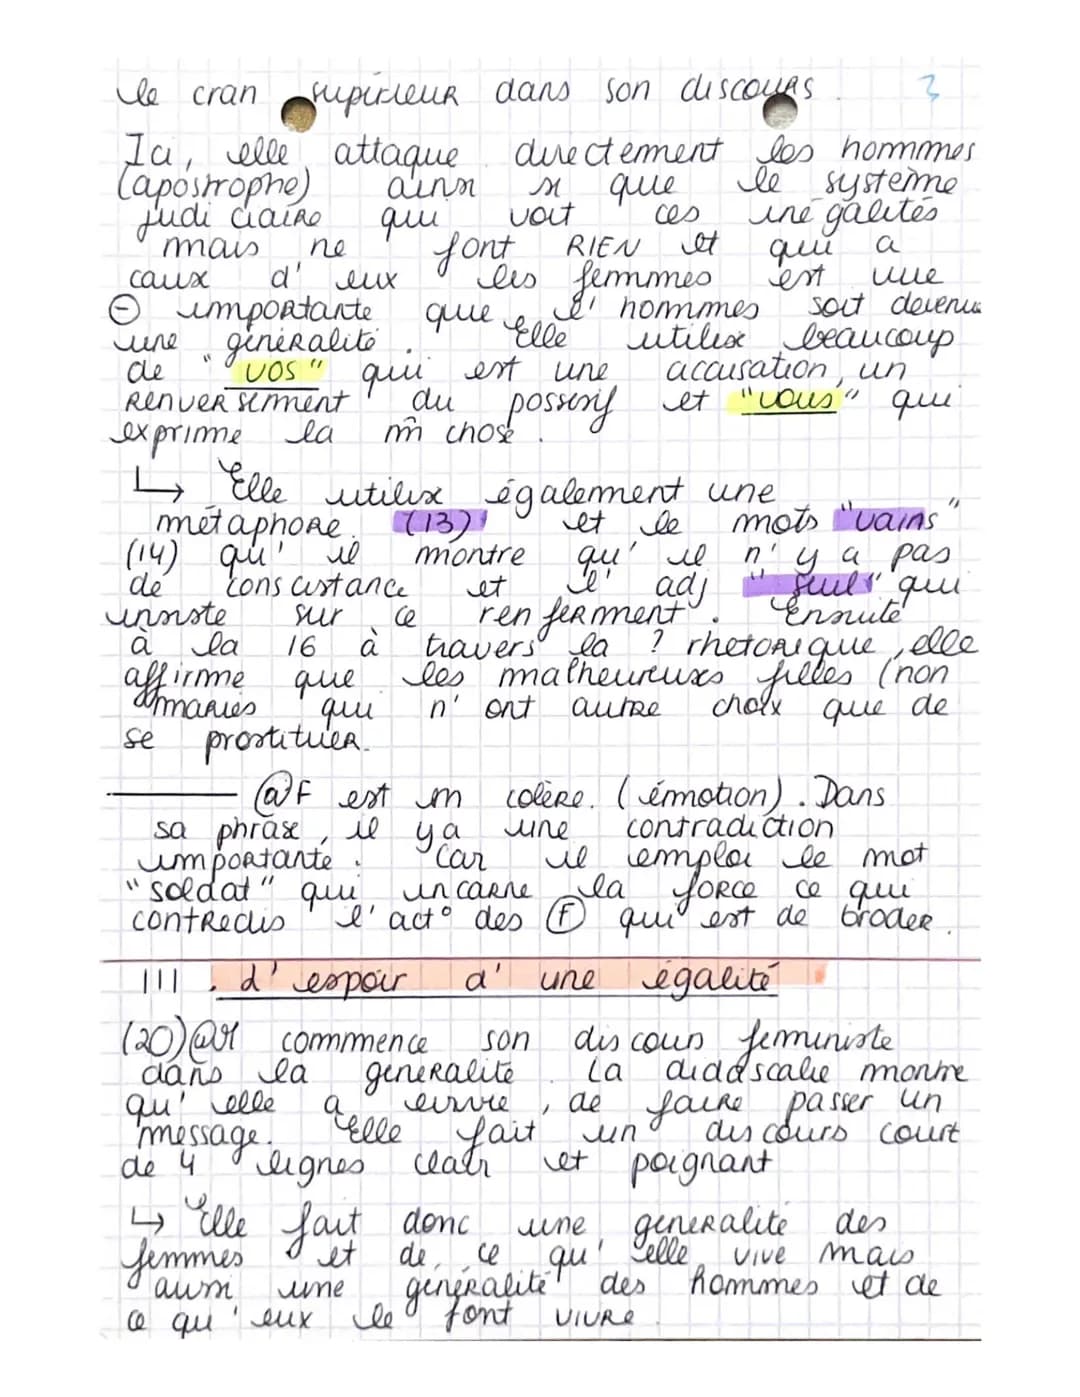 le cran supérieur dans son discours. 3
Ici, elle attaque directement les hommes
(apostrophe) ainsi si que le système
judi ciaire qui voit ces iné galités
mais ne font RIEN et qui a
caux d' eux les femmes est une
⊖ importante que l' hommes soit devenu
une généralité. Elle utilise beaucoup
de "vos" qui est une accusation, un
renversement du possesif et "vous" qui
exprime la m̂ chose.
↳ Elle utilise également une
métaphore (13) et le mots "vains"
(14) qu' il montre qu' il n' y a pas
de consistance et l' adj "seul" qui
insiste sur ce renferment. Ensuite
à la 16 à travers la ? rhetorique, elle
affirme que les malheureuses filles (non
maries qui n' ont autre choix que de
se prostituer.
@F est en colère. (émotion). Dans
sa phrase, il y a une contradiction
importante. Car il emploi le mot
"soldat" qui incarne la force ce qui
contredis l' act° des Ⓕ qui est de broder.
III. d' espoir d' une égalité
(20) commence son discours feministe
dans la généralité. La didascalie montre
qu' elle a envie, de faire passer un
message. Elle fait un discours court
de 4 lignes clair et poignant
↳ Elle fait donc une generalité des
femmes et de ce qu' elle vive mais
aussi une généralité des hommes et de
ce qu' eux le font vivre.